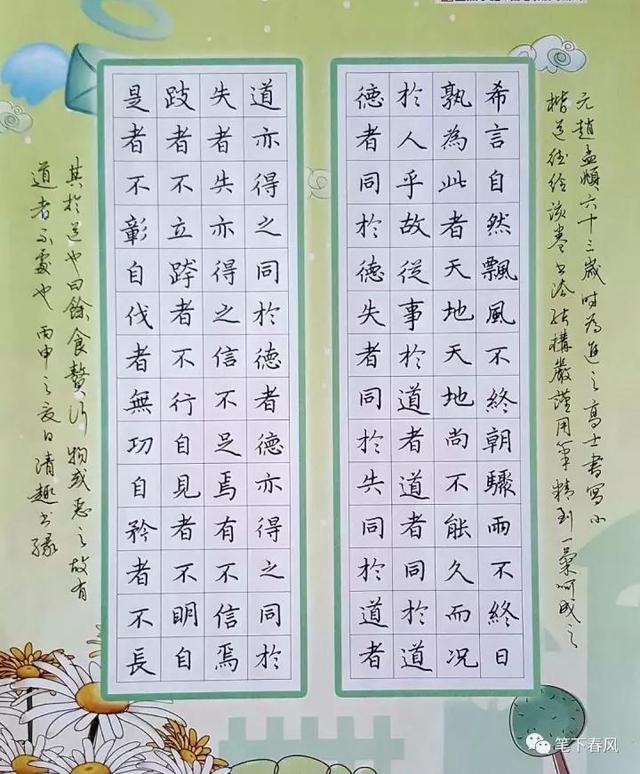 元趙孟頫六十三歲時為進之高士書寫小
楷道德經該卷書法結構嚴謹用筆精到一氣呵成之
希言自然飄風不終朝驟雨不終日
孰為此者天地天地尚不能久而況
於人乎故從事於道者道者同於道
德者同於德失者同於失同於道者
道亦得之同於德者德亦得之同於
失者失亦得之信不足焉有不信焉
跂者不立跨者不行自見者不明自
是者不彰自伐者無功自矜者不長
其於道也曰餘食贅行物或惡之故有
道者不處也 丙申之夏日清趣書緣
笔下春风